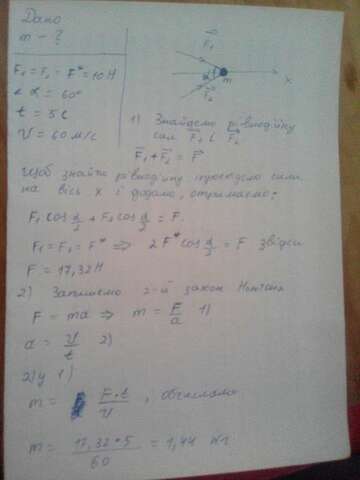 Дано
m – ?
F₁ = F₂ = F* = 10 Н
∠ α = 60°
t = 5 с
V = 60 м/с
F₁
α
m
x
F₂
1) Знайдемо рівнодійну
сил F₁ і F₂
F₁ + F₂ = F
Щоб знайти рівнодійну проєцюємо сили
на вісь x і додамо, отримаємо:
F₁ cos α/2 + F₂ cos α/2 = F.
F₁ = F₂ = F* ⇒ 2 F* cos α/2 = F звідси
F = 17,32 Н
2) Запишемо 2-й закон Ньютона
F = ma ⇒ m = F/a 1)
a = V/t 2)
2) у 1)
m = F·t/V , обчислимо
m = 17,32 * 5 / 60 = 1,44 кг